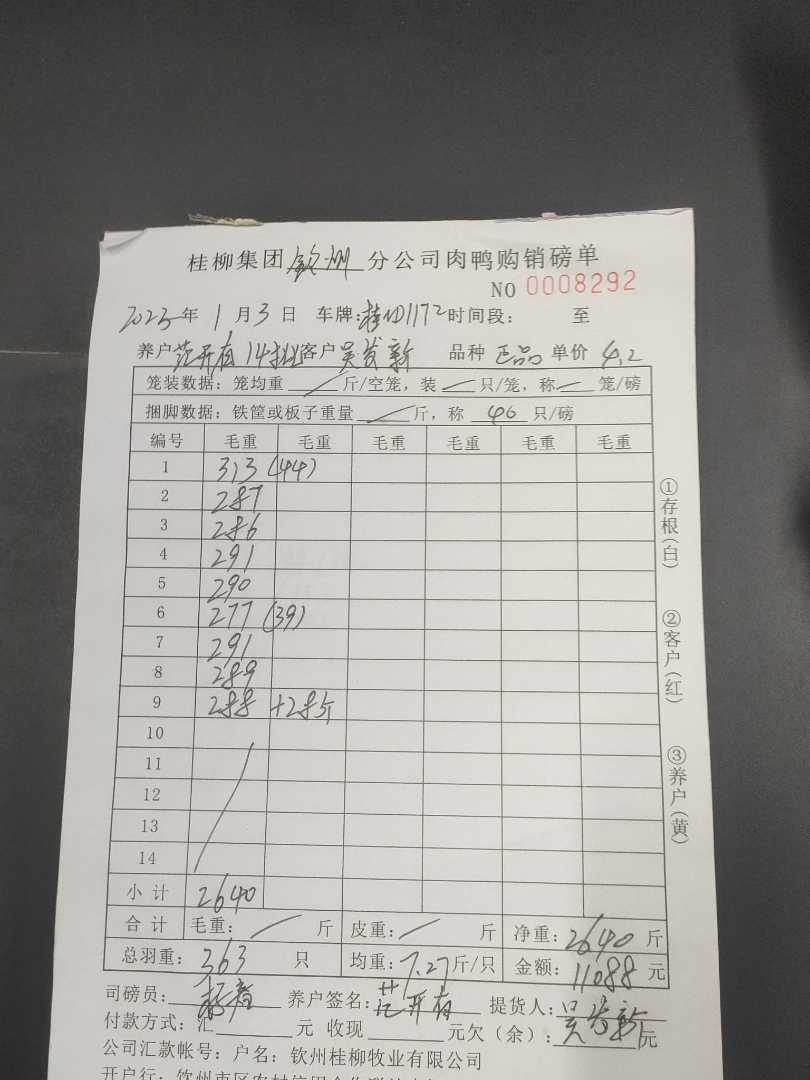 桂柳集团钦州分公司肉鸭购销磅单
NO 0008292
2023年1月3日 车牌:桂 1172时间段: 至
养户范开有14批客户吴发新 品种正品单价4.2
笼装数据:笼均重 斤/空笼,装 只/笼,称 笼/磅
捆脚数据:铁筐或板子重量 斤,称 40 只/磅
编号 毛重 毛重 毛重 毛重 毛重 毛重
1 313 (44)
2 287
3 286
4 291
5 290
6 277 (39)
7 291
8 289
9 288 +28斤
10
11
12
13
14
小计 2640
合计 毛重: 斤 皮重: 斤 净重:2640斤
总羽重:363 只 均重:7.27斤/只 金额:11088元
司磅员: 养户签名:范开有 提货人:吴发新
付款方式:汇 元 收现 元欠(余): 元
公司汇款帐号:户名:钦州桂柳牧业有限公司
开户行:钦州市区农村信用合作联社
①存根(白)
②客户(红)
③养户(黄)